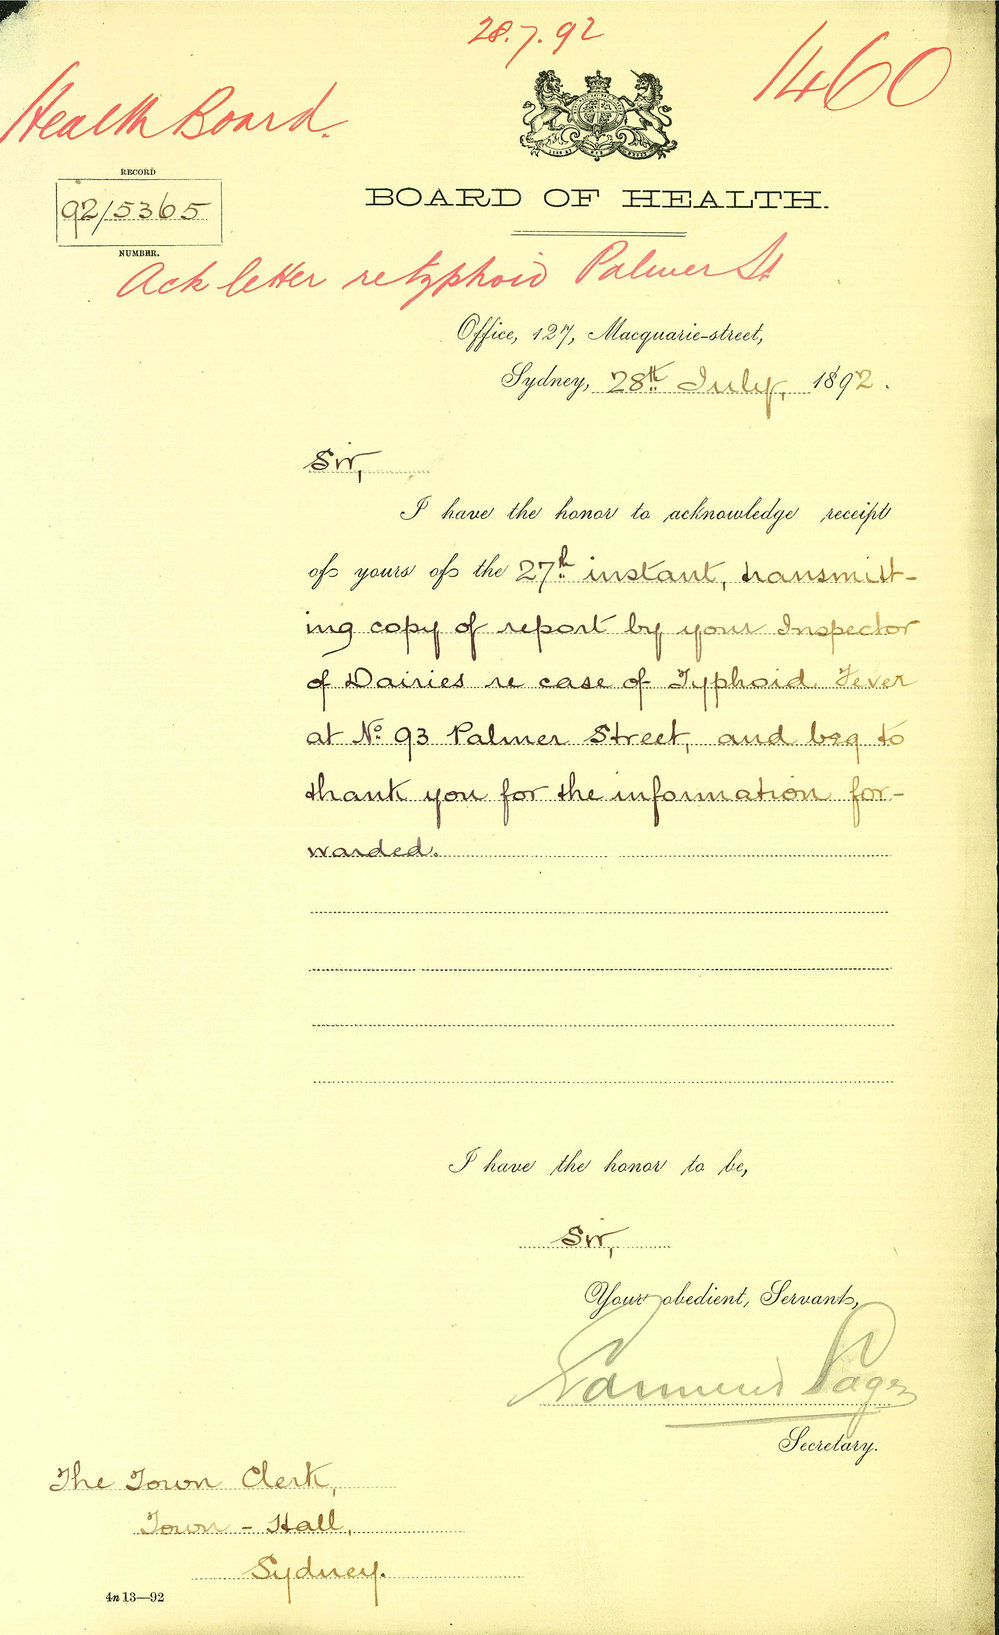 28.7.92
1460
Health Board.
RECORD
92/5365
NUMBER.
BOARD OF HEALTH.
Ack letter re typhoid Palmer St
Office, 127, Macquarie-street,
Sydney, 28th July, 1892.
Sir,
I have the honor to acknowledge receipt
of yours of the 27th instant, transmitt-
ing copy of report by your Inspector
of Dairies re case of Typhoid Fever
at No. 93 Palmer Street, and beg to
thank you for the information for-
warded.
I have the honor to be,
Sir,
Your obedient, Servant,
Edmund Sager
Secretary.
The Town Clerk,
Town-Hall,
Sydney.
4n 13—92